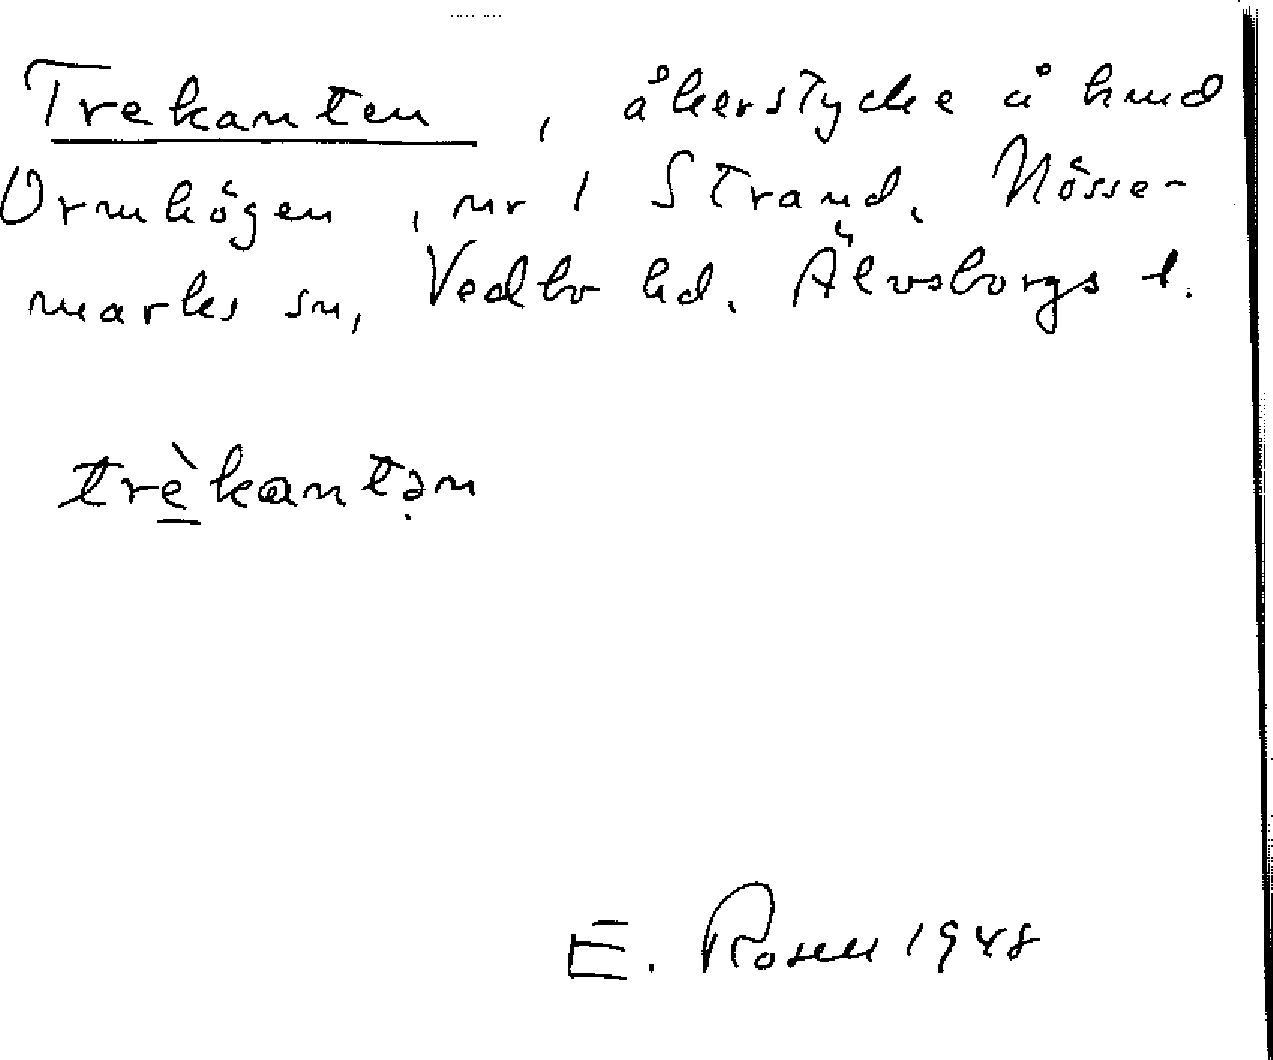 Trekanten, åkerstycke å hmd
Ormhögen, nr 1 Strand. Nösse-
marks sn, Vedbo hd. Älvsborgs l.
trè̱kantə̣n
E. Rosell 1948